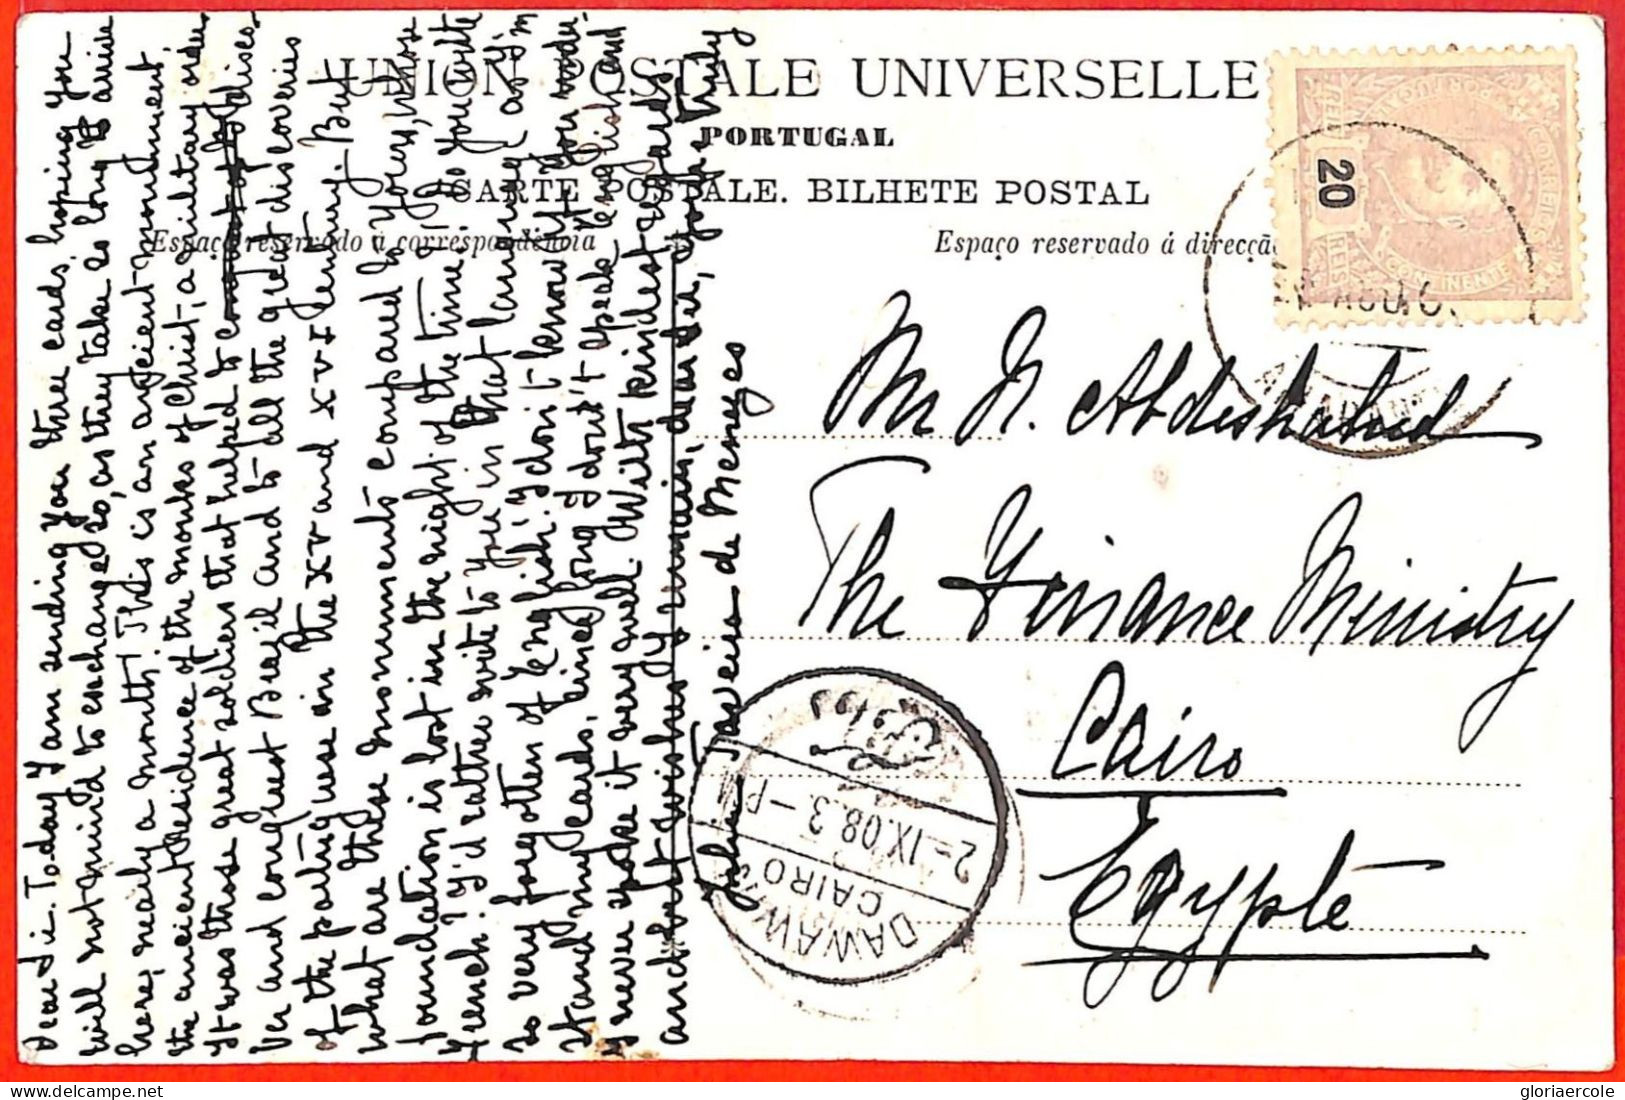 UNION POSTALE UNIVERSELLE
PORTUGAL
CARTE POSTALE. BILHETE POSTAL
Espaço reservado á correspondência
Espaço reservado á direcção
CORREIOS
PORTUGAL
CONTINENTE
20
REIS
Dear Sir. Today I am sending you three cards, hoping you
will not mind to exchange so, as they take so long to arrive
here, nearly a month. This is an ancient monument,
the ancient residence of the monks of Christ, a military order
It was those great soldiers that helped to conquest of to disco
ver and conquest Brazil and to all the great discoveries
of the portuguese in the XV and XVI century. But
what are these monuments compared to yours, whose
foundation is lost in the night of the time! Do you write
French? I'd rather write to you in that language, as I'm
so very forgotten of English! I don't know if you under
stand my cards, since long I don't speak English and
I never spoke it very well. With kindest regards
and best wishes I remain, dear Sir, yours truly
Julia Taveira de Menezes
Mr N.
The Finance Ministry
Cairo
Egypte
DAWAWIN
CAIRO
2-IX.08.3-PM